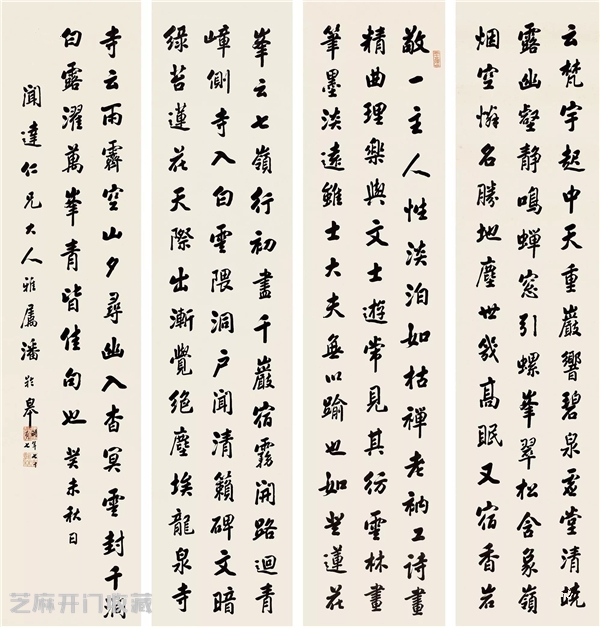 云梵宇起中天重巖響碧泉虛堂清曉
露幽壑靜鳴蟬窓引螺峯翠松含象嶺
烟空憐名勝地塵世幾高眠又宿香岩
敬一主人性淡泊如枯禪老衲工詩畫
精曲理樂與文士遊常見其仿雲林畫
筆墨淡遠雖士大夫無以踰也如登蓮花
峯云七嶺行初盡千巖宿霧開路迴青
嶂側寺入白雲隈洞户聞清籟碑文暗
緑苔蓮花天際出漸覺絕塵埃龍泉寺
寺云雨霽空山夕尋幽入杳冥雲封千澗
白露濯萬峯青皆佳句也 癸未秋日
聞達仁兄大人雅屬潘齡皋
芝麻开门收藏